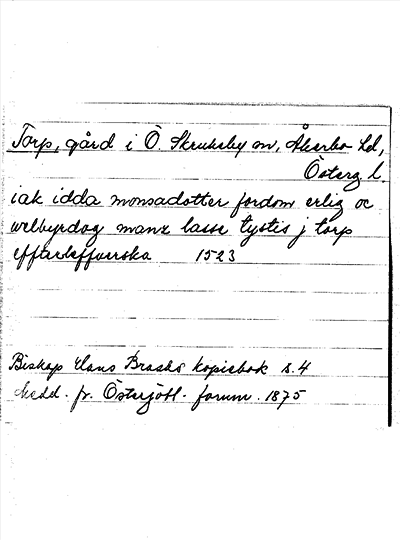 Torp, gård i Ö. Skrukeby sn, Åkerbo hd,
Österg l.
iak idda monsadotter fordom erlig oc
welbyrdog manz lasse tystis j torp
effterleffuerska 1523
Biskop Hans Brasks kopiebok s. 4
Medd. fr. Östergötl. fornm. 1875